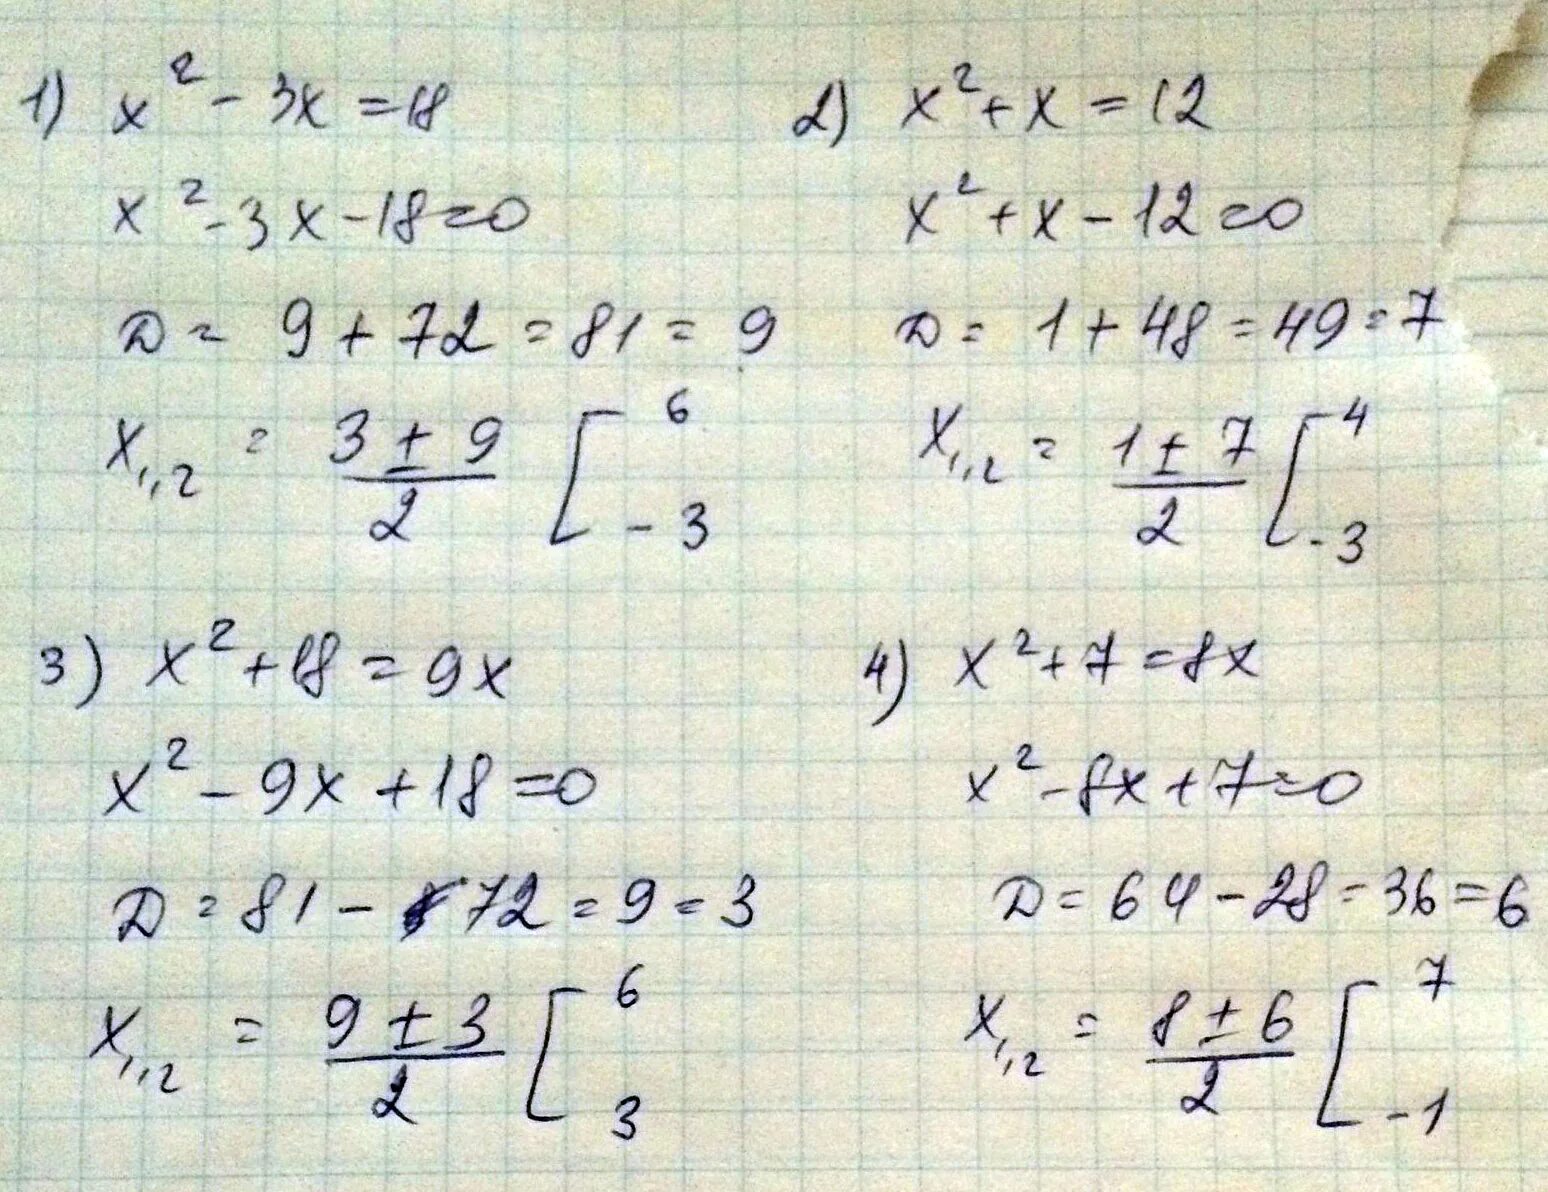 1) x² - 3x = 18
x² - 3x - 18 = 0
D = 9 + 72 = 81 = 9
x₁,₂ = (3 ± 9)/2 [ 6
- 3
2) x² + x = 12
x² + x - 12 = 0
D = 1 + 48 = 49 = 7
x₁,₂ = (1 ± 7)/2 [ 4
- 3
3) x² + 18 = 9x
x² - 9x + 18 = 0
D = 81 - 72 = 9 = 3
x₁,₂ = (9 ± 3)/2 [ 6
3
4) x² + 7 = 8x
x² - 8x + 7 = 0
D = 64 - 28 = 36 = 6
x₁,₂ = (8 ± 6)/2 [ 7
- 1